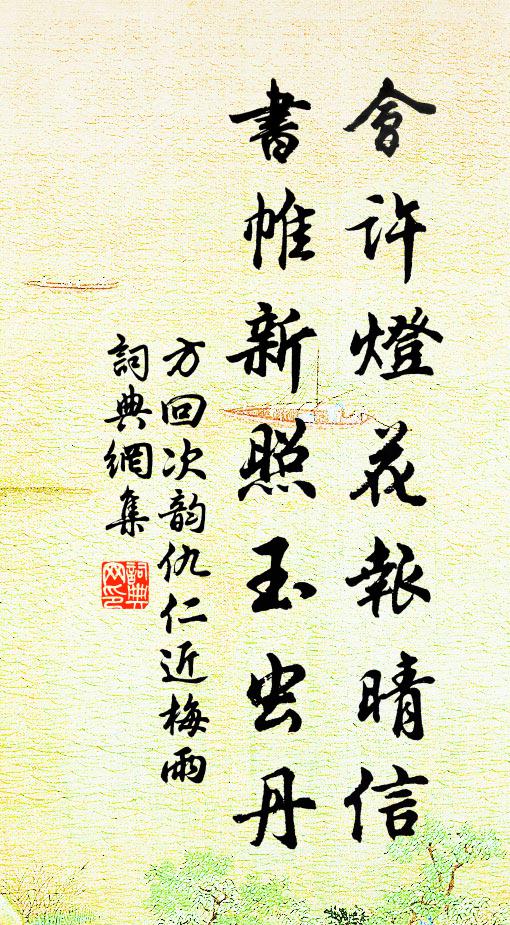 會許燈花報晴信
書帷新照玉虫丹
方回次韵仇仁近梅雨
詞典網集
詞典网印